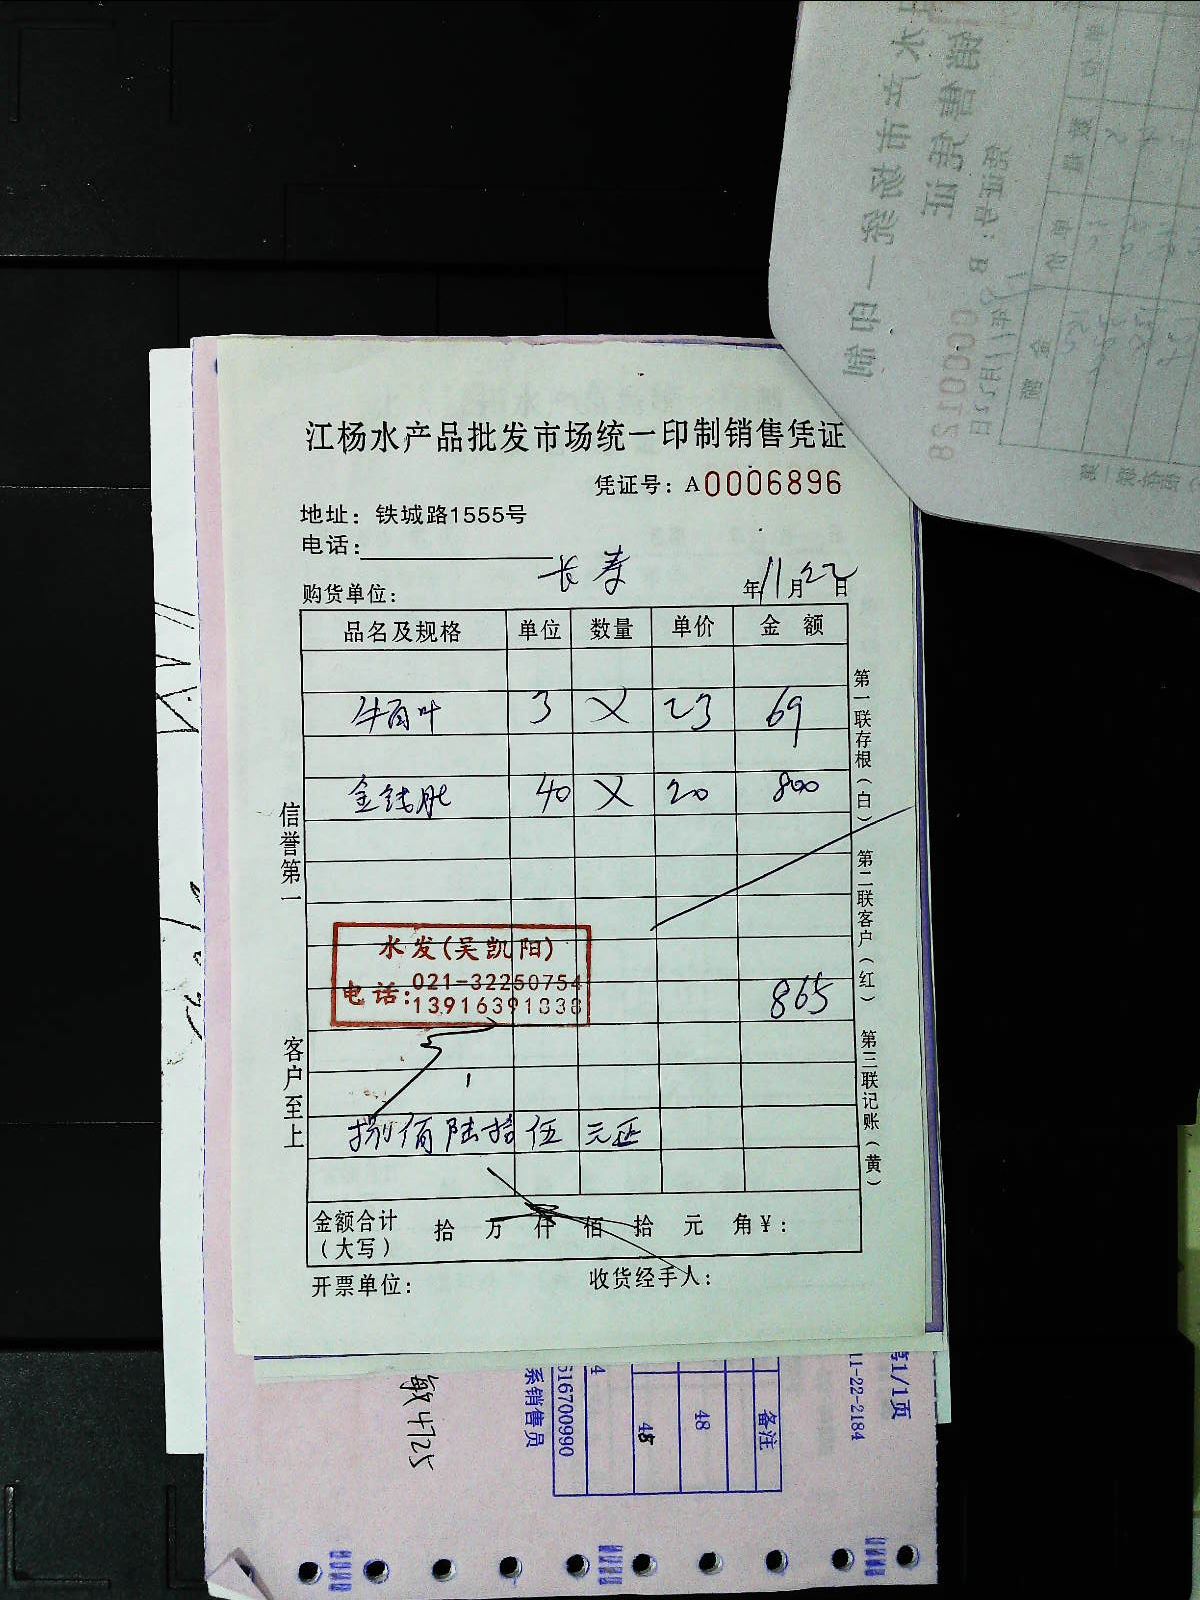 江杨水产品批发市场统一印制销售凭证
凭证号：A0006896
地址：铁城路1555号
电话：
长寿
购货单位： 年11月22日
品名及规格 单位 数量 单价 金额
牛百叶 3 X 23 69
金钱肚 40 X 20 800
水发(吴凯阳)
电话：021-32250754
13916391838
865
捌佰陆拾伍元正
金额合计（大写） 拾 万 仟 佰 拾 元 角¥：
开票单位： 收货经手人：
信誉第一 客户至上
第一联存根（白） 第二联客户（红） 第三联记账（黄）
11-22-2184
备注
48
48
516700990
系销售员
4725